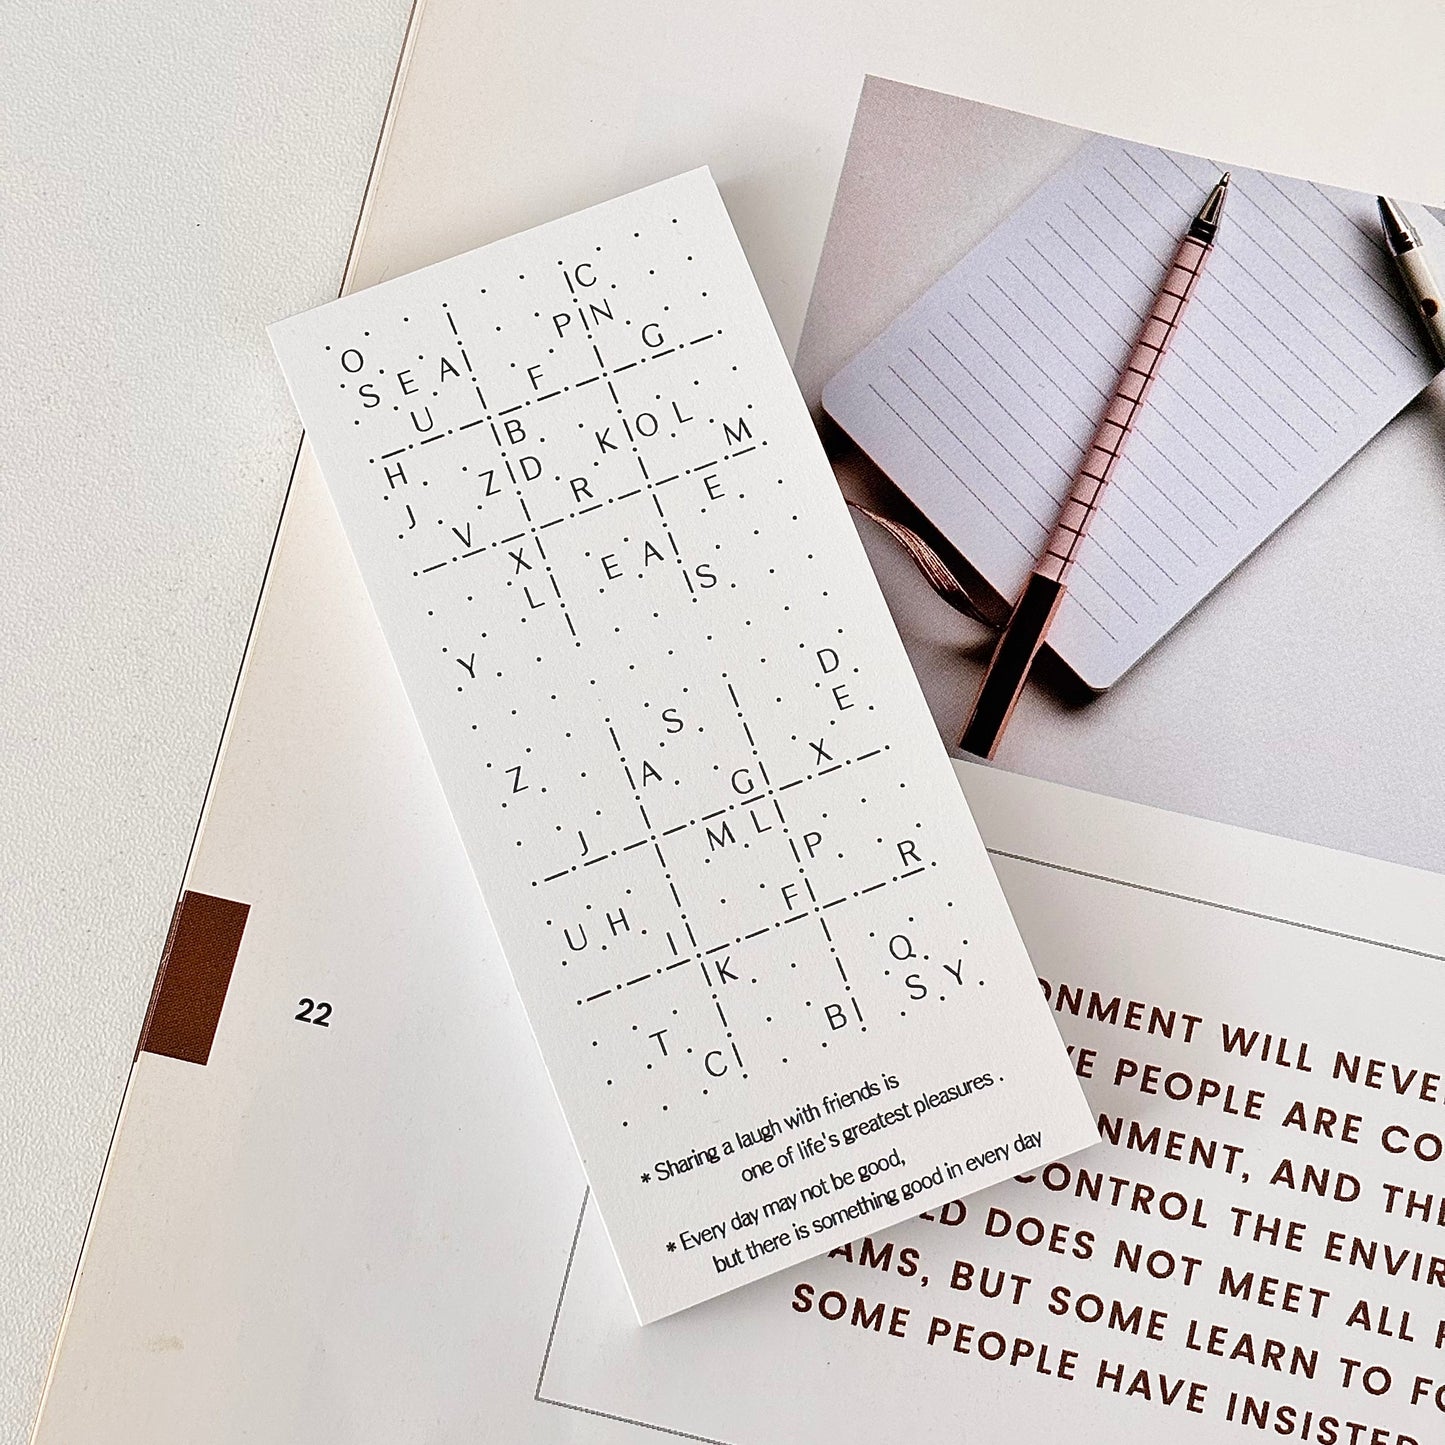 O C
S E A P N
U F G
H B
J Z D K O L
V R M
X E
L E A
Y S
Z S D
A E
J G X
M L
U H P
I F R
K
T Q
C B S Y
* Sharing a laugh with friends is
one of life's greatest pleasures .
* Every day may not be good,
but there is something good in every day
22
ONMENT WILL NEVE
VE PEOPLE ARE CO
NMENT, AND THE
CONTROL THE ENVIR
LD DOES NOT MEET ALL
AMS, BUT SOME LEARN TO FO
SOME PEOPLE HAVE INSISTED